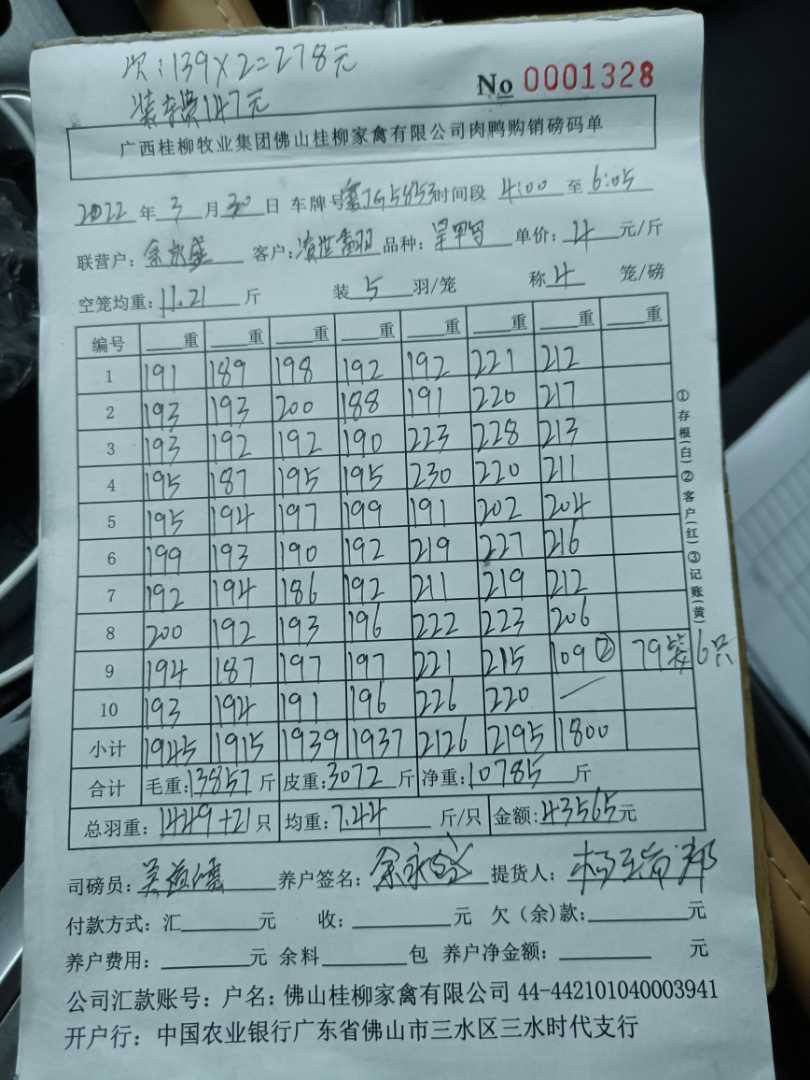 :139×2=278元
装车费147元
No 0001328
广西桂柳牧业集团佛山桂柳家禽有限公司肉鸭购销磅码单
2022年3月30日 车牌号 JG5853 时间段 4:00 至 6:05
联营户:余永盛 客户: 品种: 单价:4 元/斤
空笼均重:11.21 斤 装 5 羽/笼 称 4 笼/磅
编号 重 重 重 重 重 重 重 重
1 191 189 198 192 192 221 212
2 193 193 200 188 191 220 217
3 193 192 192 190 223 228 213
4 195 187 195 195 230 220 211
5 195 194 197 199 191 202 204
6 199 193 190 192 219 227 216
7 192 194 186 192 211 219 212
8 200 192 193 196 222 223 206
9 194 187 197 197 221 215 109② 79装6只
10 193 194 191 196 226 220 —
小计 1945 1915 1939 1937 2126 2195 1800
合计 毛重:13857斤 皮重:3072斤 净重:10785斤
总羽重:1449+21只 均重:7.44 斤/只 金额:43565元
司磅员: 养户签名:余永盛 提货人:
付款方式:汇 元 收: 元 欠(余)款: 元
养户费用: 元 余料 包 养户净金额: 元
公司汇款账号:户名:佛山桂柳家禽有限公司 44-442101040003941
开户行:中国农业银行广东省佛山市三水区三水时代支行
①存根(白)②客户(红)③记账(黄)